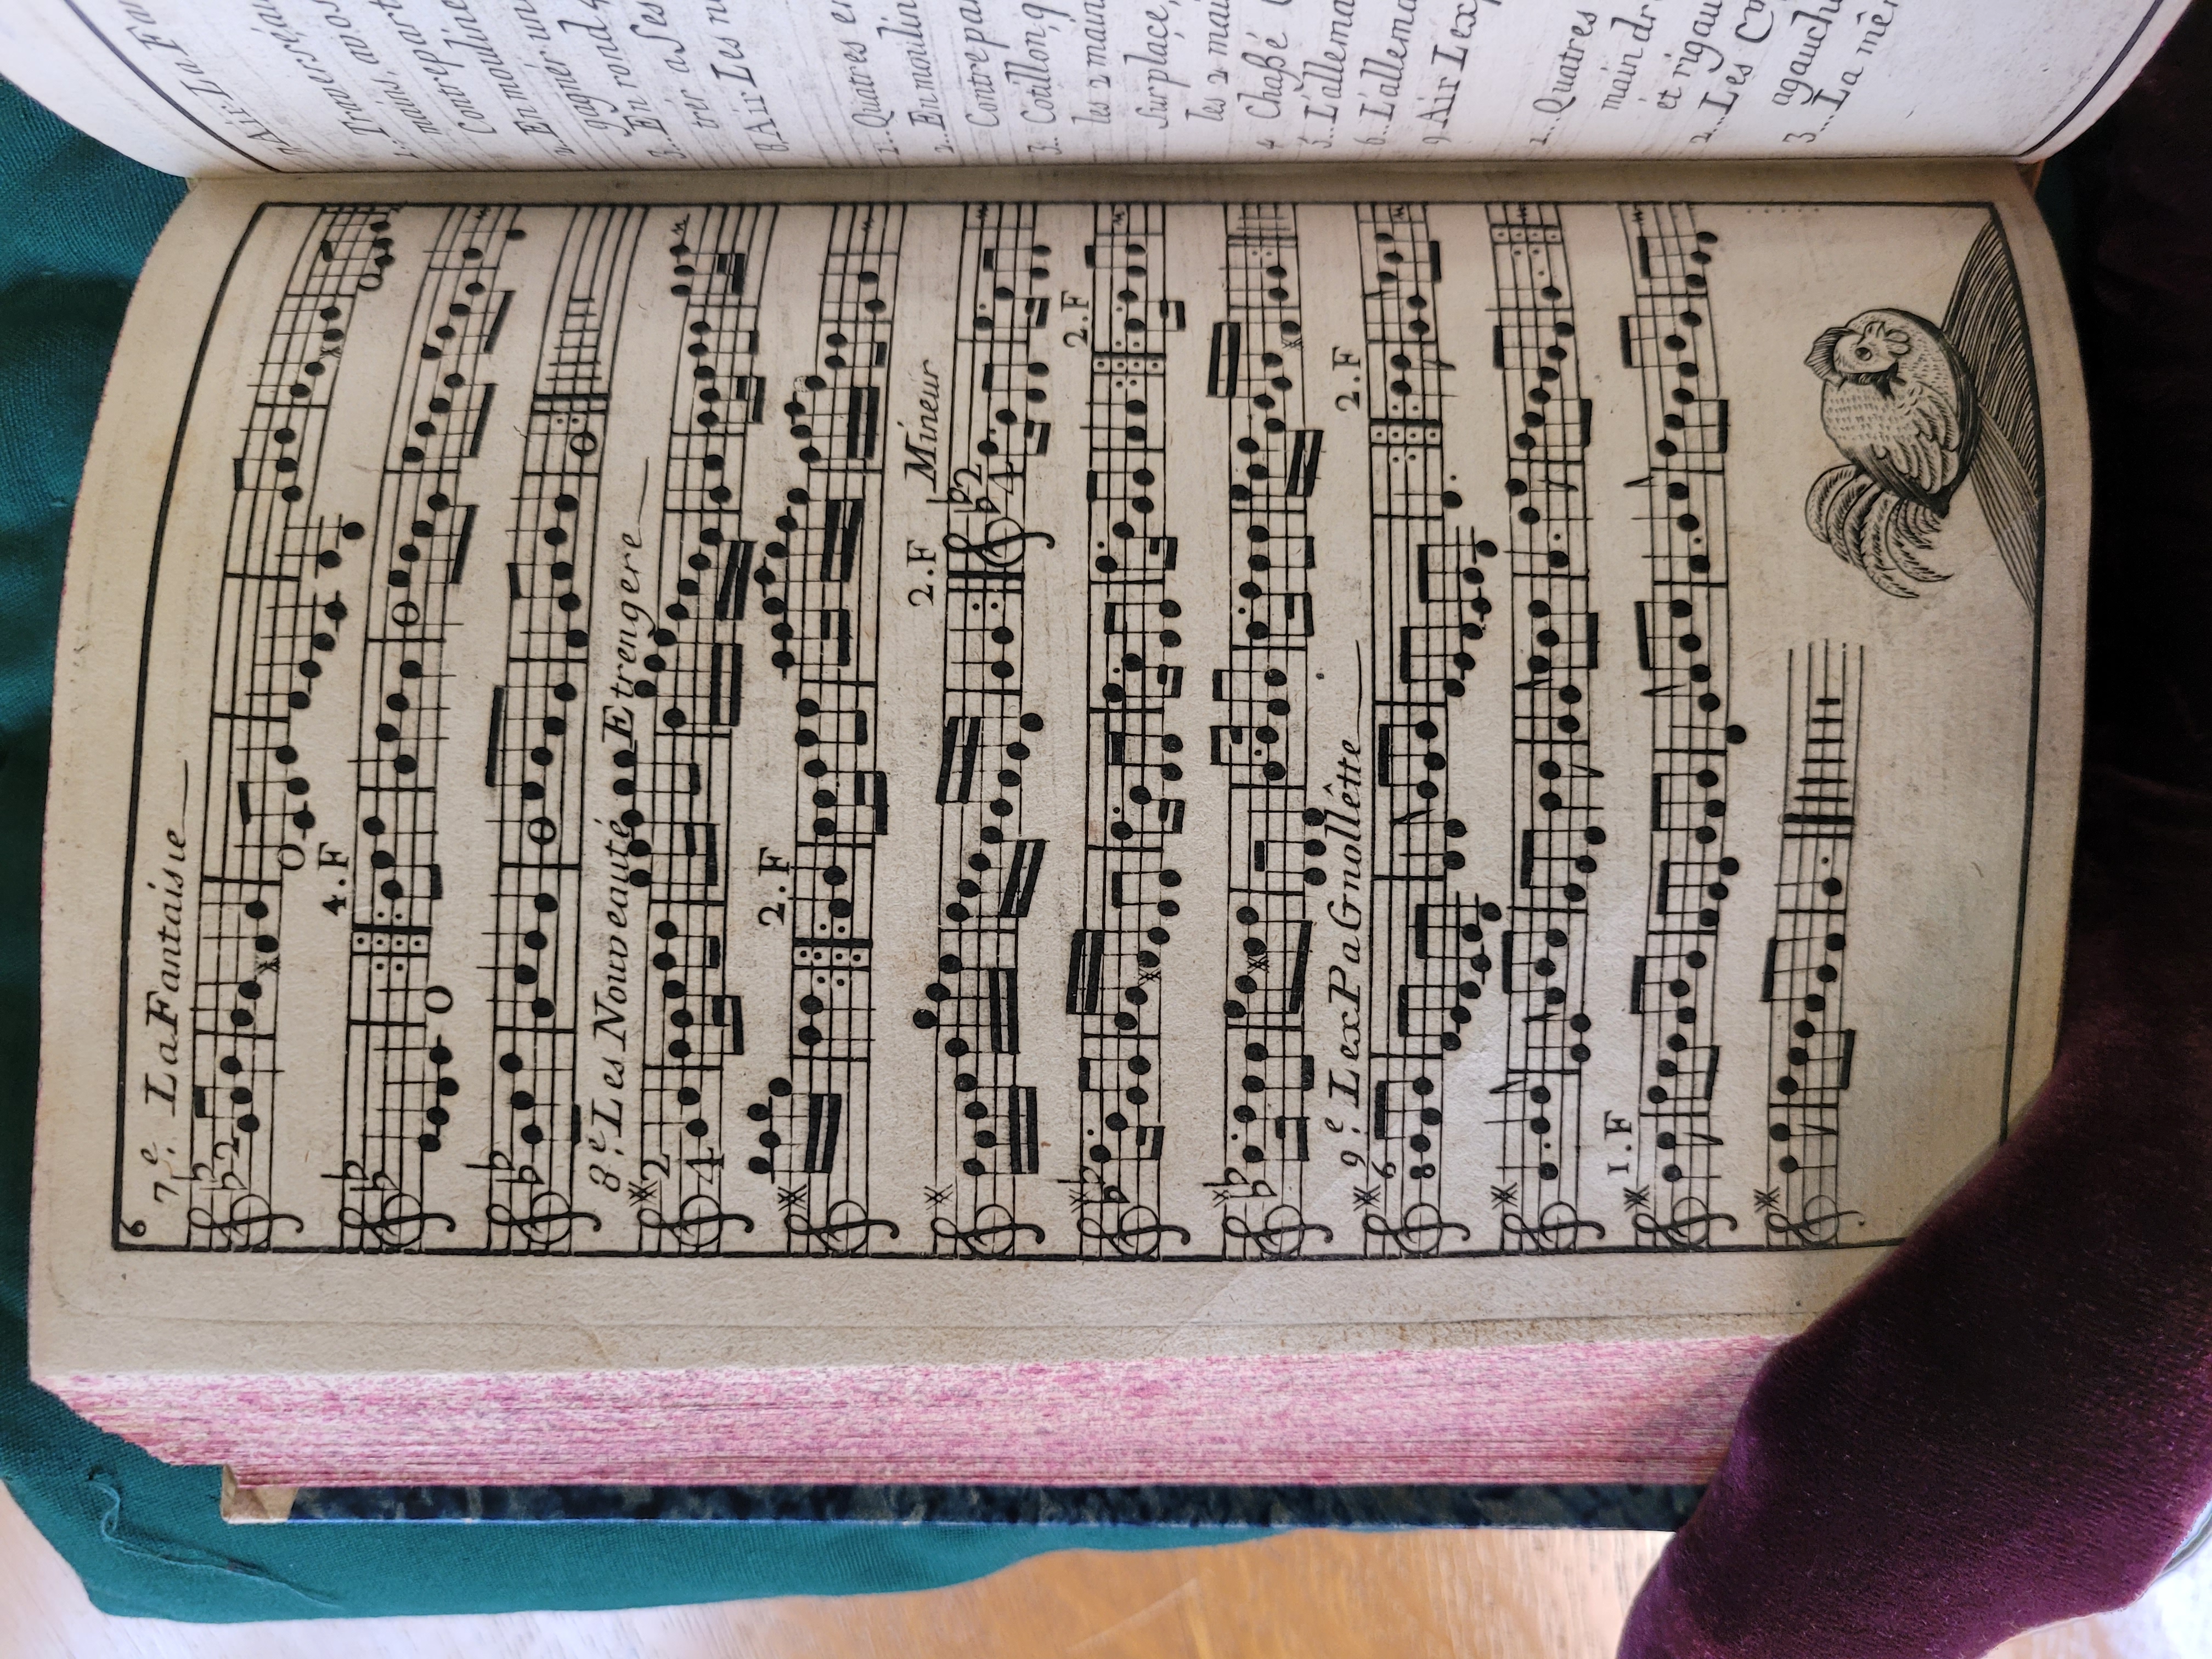 6
7.e La Fantaisie
4.F
8.e Les Nouveauté Etrengere
2.F
2.F Mineur
2.F
9.e Lex Pa Gnollêtte
2.F
1.F
7. Air. La
1..
main, au
Contrepart
Enmoulin
2.
En rond
3.. a Ses
trer
8. Air Les n
1.. Quatres en
2.. En moulin
Contrepar
3. Cotillon, q
les 2 main
Surplace,
les 2 mai
4 Chaßé
5. L'allema
6.. L'allema
9 Air Lex
1.. Quatres
main dr
et rigau
2... Les
agauch
3... La mêm